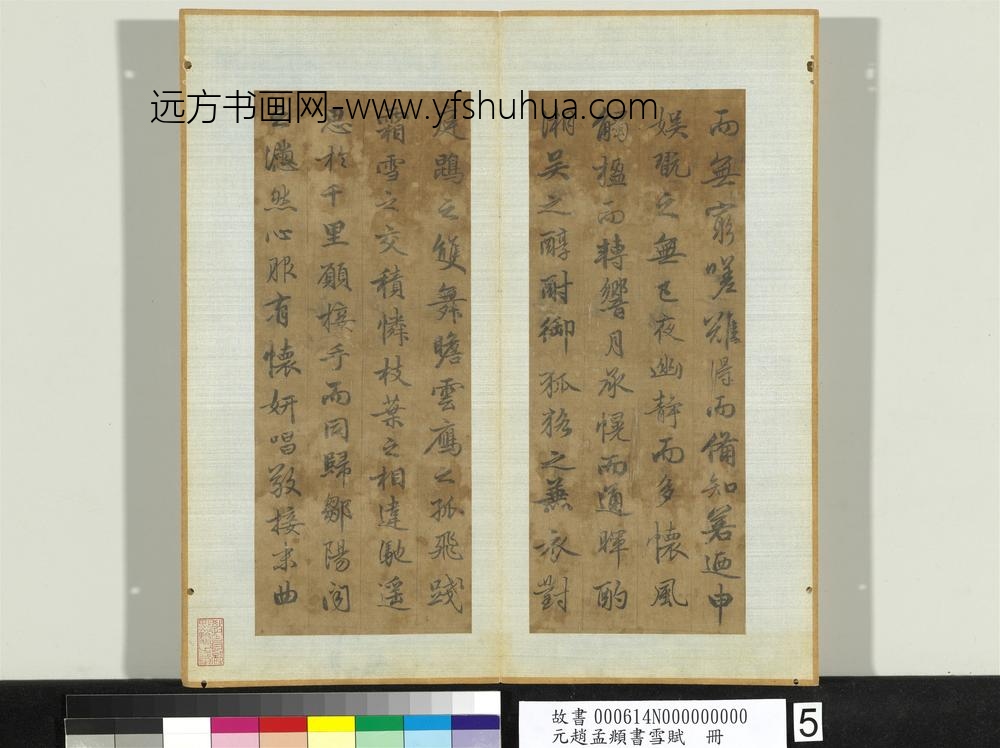 远方书画网-www.yfshuhua.com
而無窮嗟難得而備知若迺申
娛翫之無已夜幽靜而多懷風
觸楹而轉響月承幌而通暉酌
湘吳之醇酎御狐狢之兼衣對
庭鵾之雙舞瞻雲鴈之孤飛踐
霜雪之交積憐枝葉之相違馳遥
思於千里願接手而同歸鄒陽聞
之懣然心服有懷妍唱敬接末曲
故書 000614N000000000
元趙孟頫書雪賦 冊
5